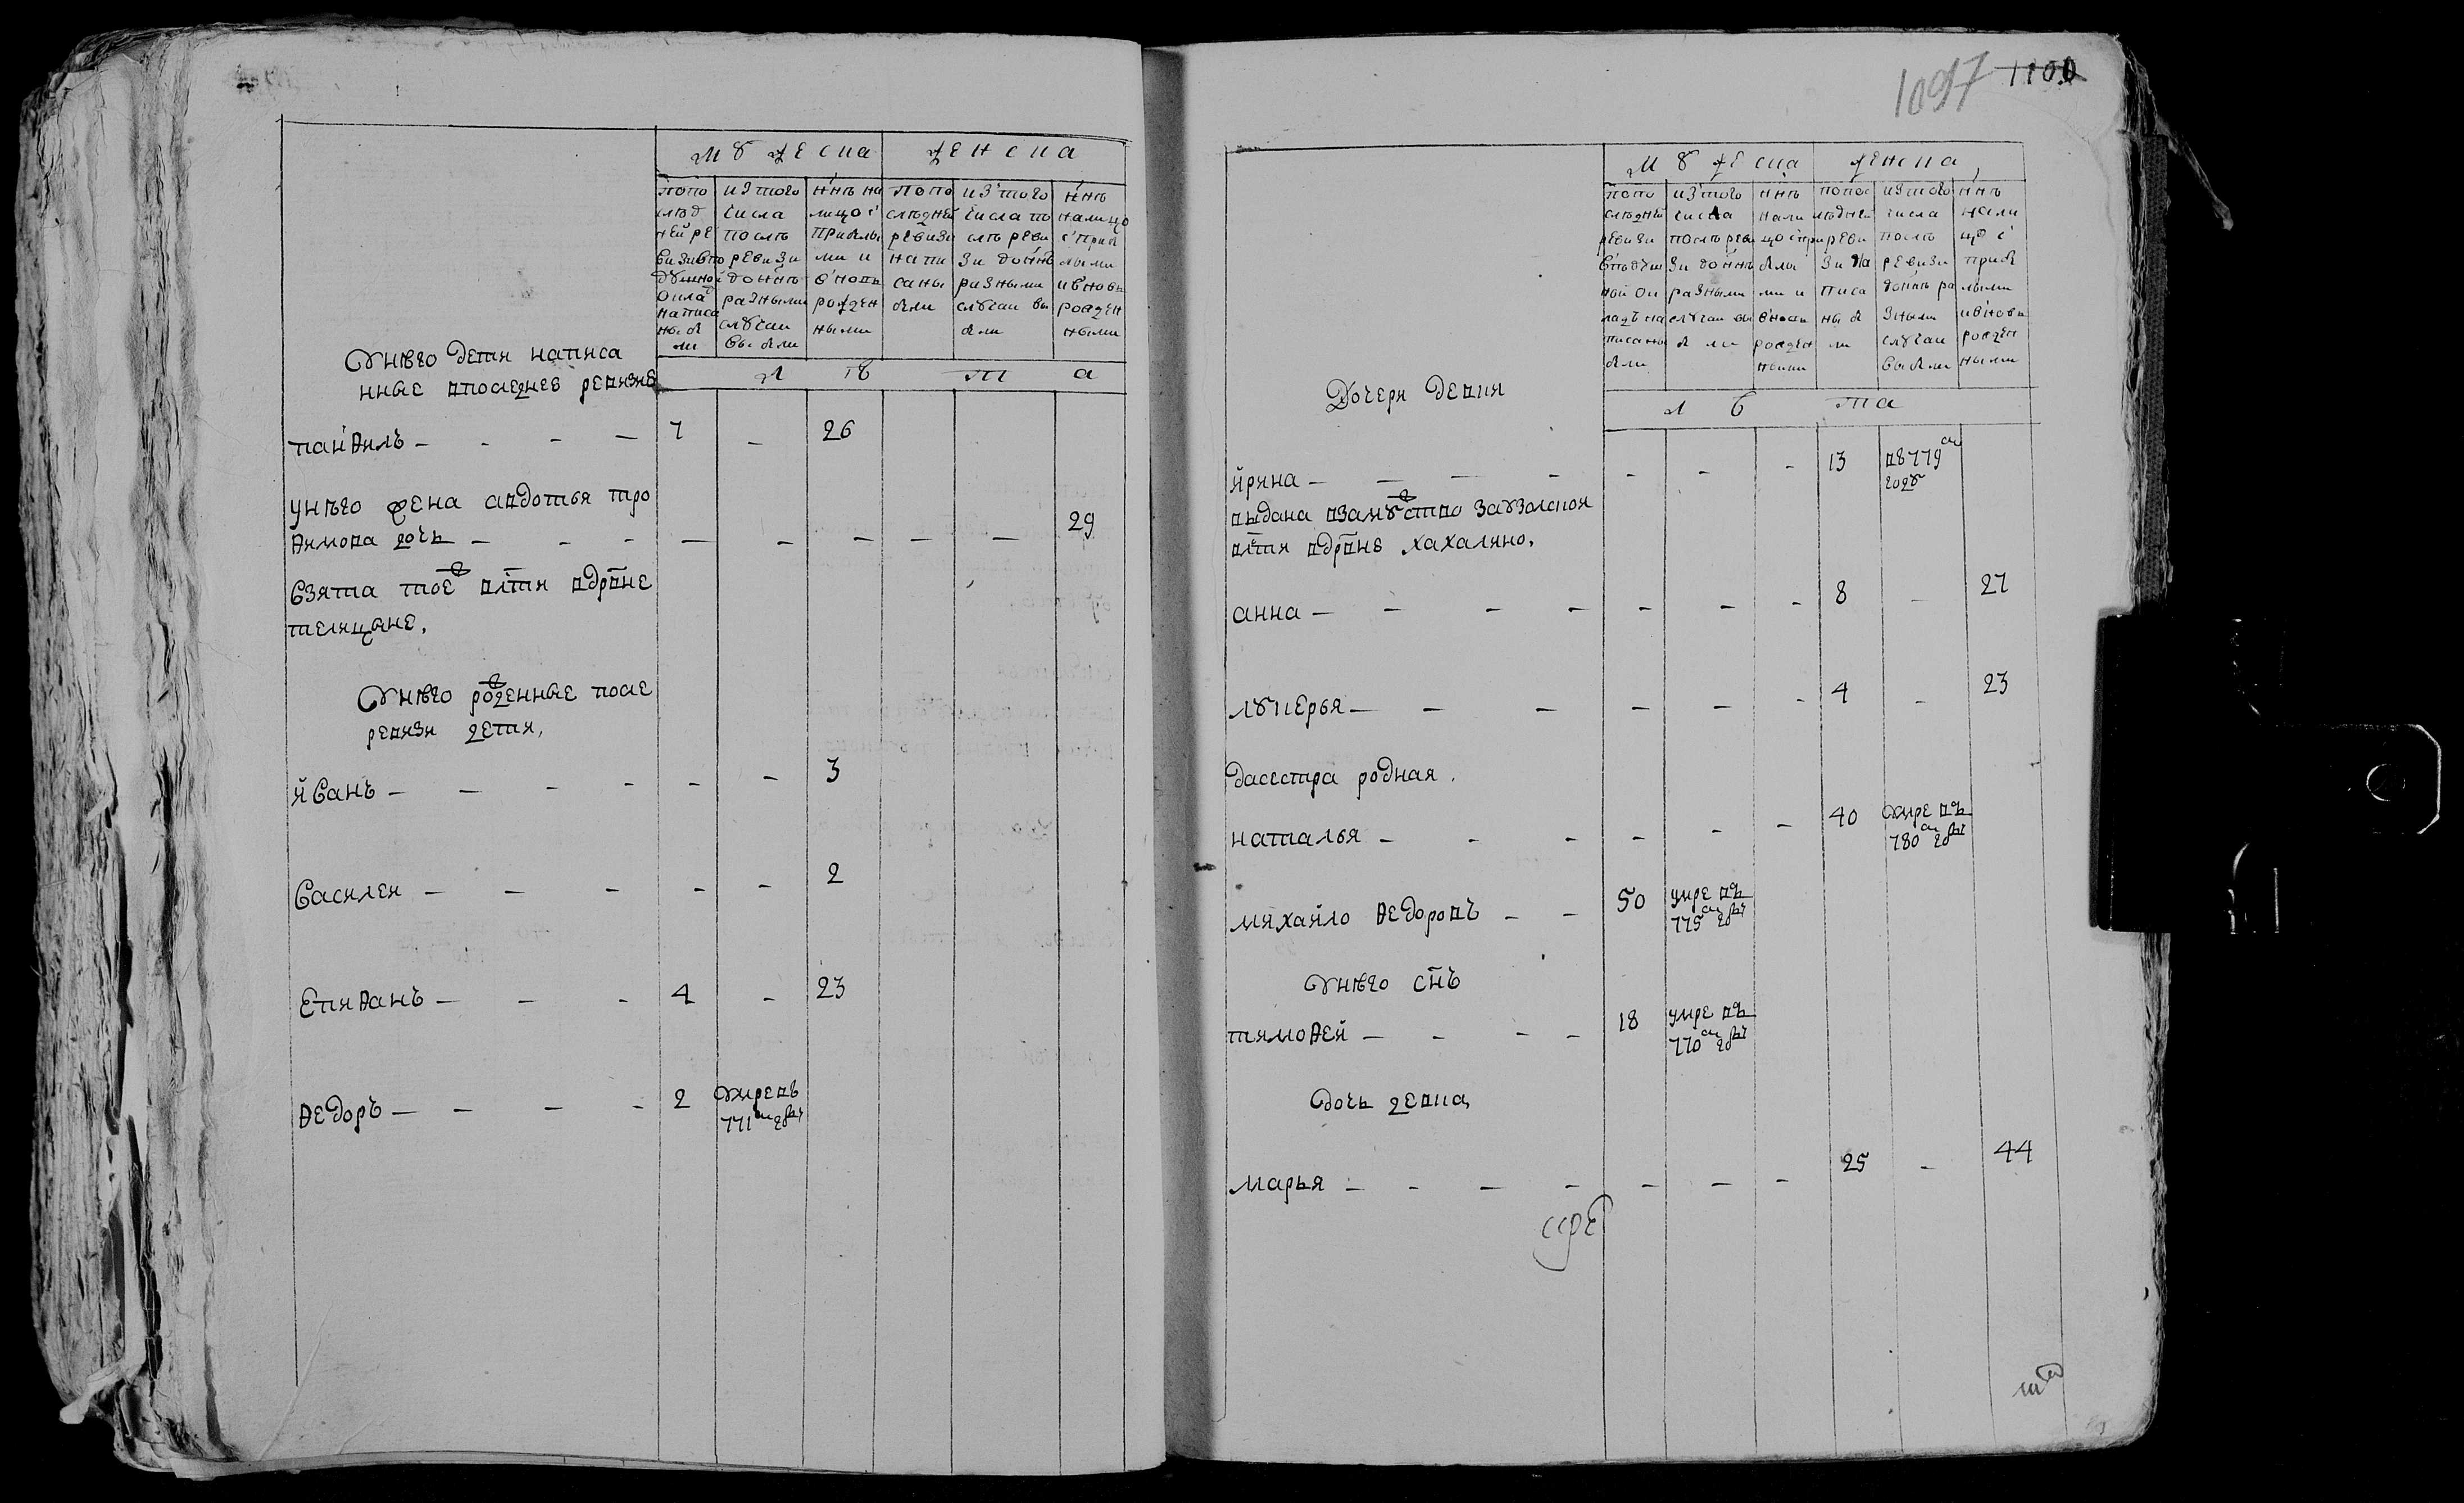 мужеска женска
попо
слѣд
ней ре
визи в по
душно
окла
написа
ны бы
ли
из того
числа
послѣ
ревизи
до ннѣ
разными
случаи
выбыли
ннѣ на
лицо с
прибылы
ми и
вновь
рожден
ными
попо
слѣдней
ревизи
напи
саны
были
из того
числа по
слѣ реви
зи до ннѣ
разными
случаи вы
были
ннѣ
налицо
с приб
лыми
и вновь
рожден
ными
лѣта
У него дети написа
нные в последнее ревизие
панѳилъ 7 26
у него жена авдотья тро
ѳимова дочь 29
взята тоеж влти вдрвне
телицыне.
У него роженные после
ревизи дети.
иванъ 3
василеи 2
Епиѳанъ 4 23
ѳедоръ 2 умре въ
771м гду
1097 1100
мужеска женска
попо
слѣдней
ревизи
в подуш
ной ок
ладъ на
писаны
были
из того
числа
послѣ реви
зи до ннѣ
разными
случаи вы
были
ннѣ
нали
цо с при
былы
ми и
вновь
рожден
ными
попос
лѣдней
реви
зи на
писа
ны бы
ли
из того
числа
послѣ
ревизи
до ннѣ ра
зными
случаи
выбыли
ннѣ
нали
цо с
прибы
лыми
и вновь
рожден
ными
лѣта
Дочери девки
ирина 13 в 779м
году
выдана взамужство заузолской
влти вдрвне хахалино.
анна 8 27
лукерья 4 23
да сестра родная.
наталья 40 умре въ
780м гду
михаило ѳедоровъ 50 умре въ
775м гду
У него снъ
тимоѳеи 18 умре въ
770м гду
дочь девка
марья 25 44